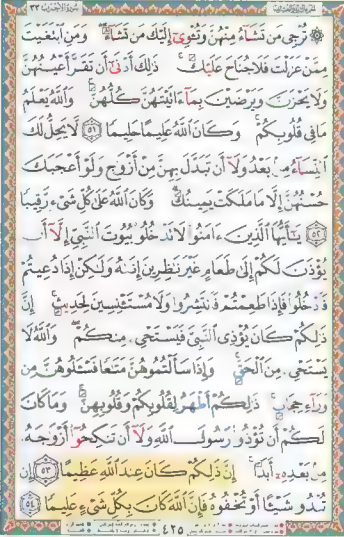 سُورَةُ الأَحْزَابِ ٣٣
۞ تُرْجِى مَن تَشَآءُ مِنْهُنَّ وَتُـْٔوِىٓ إِلَيْكَ مَن تَشَآءُ ۖ وَمَنِ ٱبْتَغَيْتَ
مِمَّنْ عَزَلْتَ فَلَا جُنَاحَ عَلَيْكَ ۚ ذَٰلِكَ أَدْنَىٰٓ أَن تَقَرَّ أَعْيُنُهُنَّ
وَلَا يَحْزَنَّ وَيَرْضَيْنَ بِمَآ ءَاتَيْتَهُنَّ كُلُّهُنَّ ۚ وَٱللَّهُ يَعْلَمُ
مَا فِى قُلُوبِكُمْ ۚ وَكَانَ ٱللَّهُ عَلِيمًا حَلِيمًا ٥١ لَّا يَحِلُّ لَكَ
ٱلنِّسَآءُ مِنۢ بَعْدُ وَلَآ أَن تَبَدَّلَ بِهِنَّ مِنْ أَزْوَٰجٍ وَلَوْ أَعْجَبَكَ
حُسْنُهُنَّ إِلَّا مَا مَلَكَتْ يَمِينُكَ ۗ وَكَانَ ٱللَّهُ عَلَىٰ كُلِّ شَىْءٍ رَّقِيبًا
٥٢ يَـٰٓأَيُّهَا ٱلَّذِينَ ءَامَنُوا۟ لَا تَدْخُلُوا۟ بُيُوتَ ٱلنَّبِىِّ إِلَّآ أَن
يُؤْذَنَ لَكُمْ إِلَىٰ طَعَامٍ غَيْرَ نَـٰظِرِينَ إِنَىٰهُ وَلَـٰكِنْ إِذَا دُعِيتُمْ
فَٱدْخُلُوا۟ فَإِذَا طَعِمْتُمْ فَٱنتَشِرُوا۟ وَلَا مُسْتَـْٔنِسِينَ لِحَدِيثٍ ۚ إِنَّ
ذَٰلِكُمْ كَانَ يُؤْذِى ٱلنَّبِىَّ فَيَسْتَحْىِۦ مِنكُمْ ۖ وَٱللَّهُ لَا
يَسْتَحْىِۦ مِنَ ٱلْحَقِّ ۚ وَإِذَا سَأَلْتُمُوهُنَّ مَتَـٰعًا فَسْـَٔلُوهُنَّ مِن
وَرَآءِ حِجَابٍ ۚ ذَٰلِكُمْ أَطْهَرُ لِقُلُوبِكُمْ وَقُلُوبِهِنَّ ۚ وَمَا كَانَ
لَكُمْ أَن تُؤْذُوا۟ رَسُولَ ٱللَّهِ وَلَآ أَن تَنكِحُوٓا۟ أَزْوَٰجَهُۥ
مِنۢ بَعْدِهِۦٓ أَبَدًا ۚ إِنَّ ذَٰلِكُمْ كَانَ عِندَ ٱللَّهِ عَظِيمًا ٥٣ إِن
تُبْدُوا۟ شَيْـًٔا أَوْ تُخْفُوهُ فَإِنَّ ٱللَّهَ كَانَ بِكُلِّ شَىْءٍ عَلِيمًا ٥٤
٤٢٥